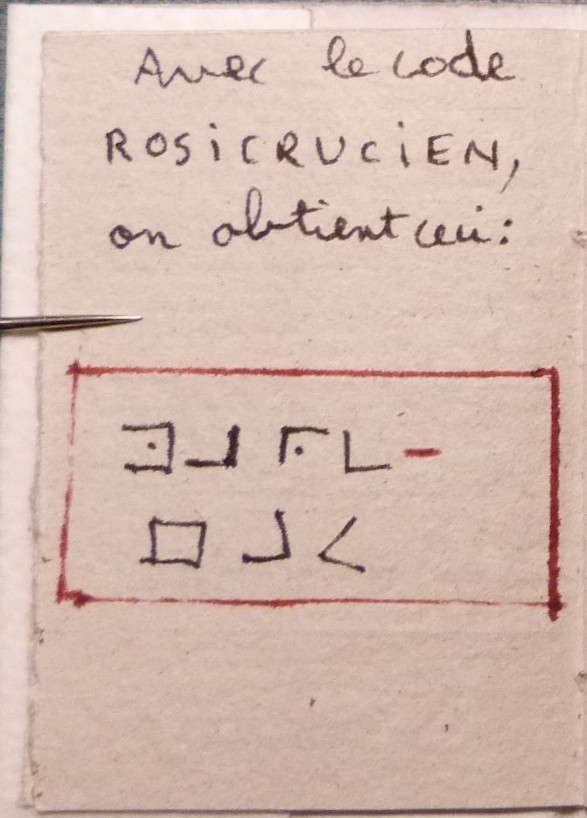 Avec le code
ROSICRUCIEN,
on obtient ceci: